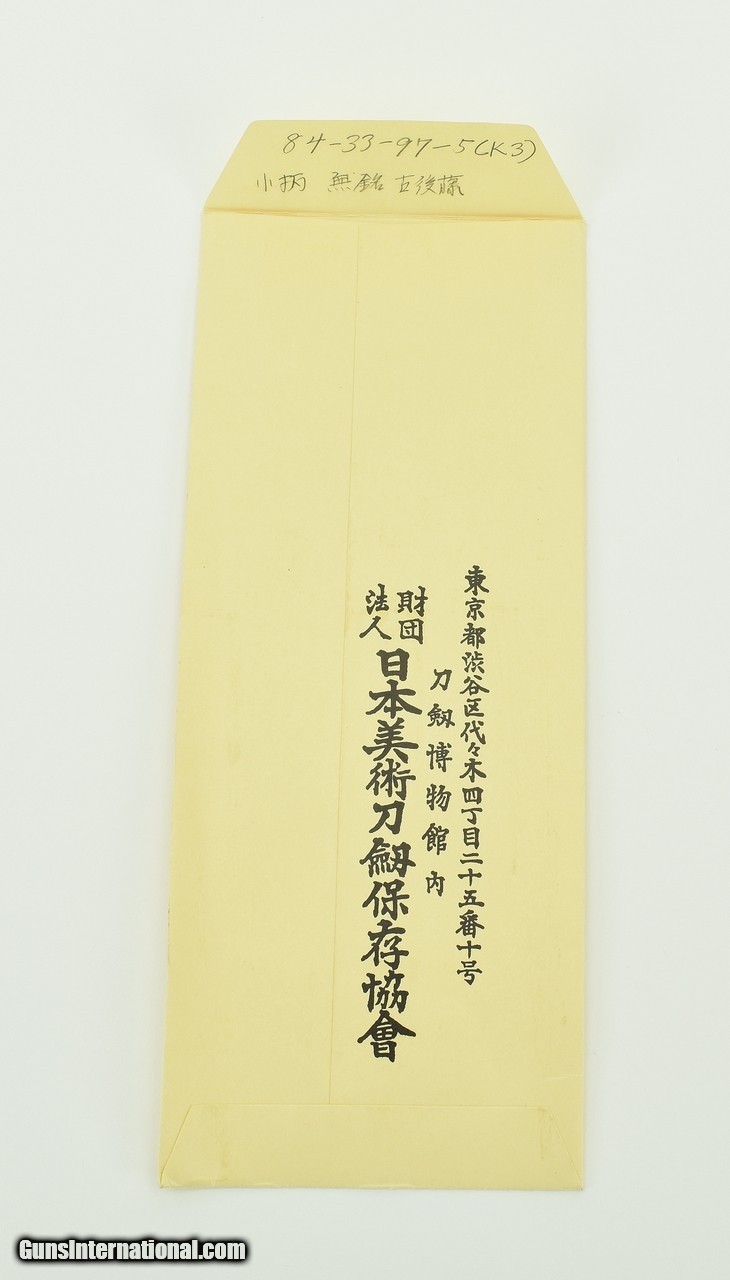 84-33-97-5(K3)
小柄 無銘 古後藤
東京都渋谷区代々木四丁目二十五番十号
刀劔博物館内
財団
法人
日本美術刀劔保存協會
GunsInternational.com